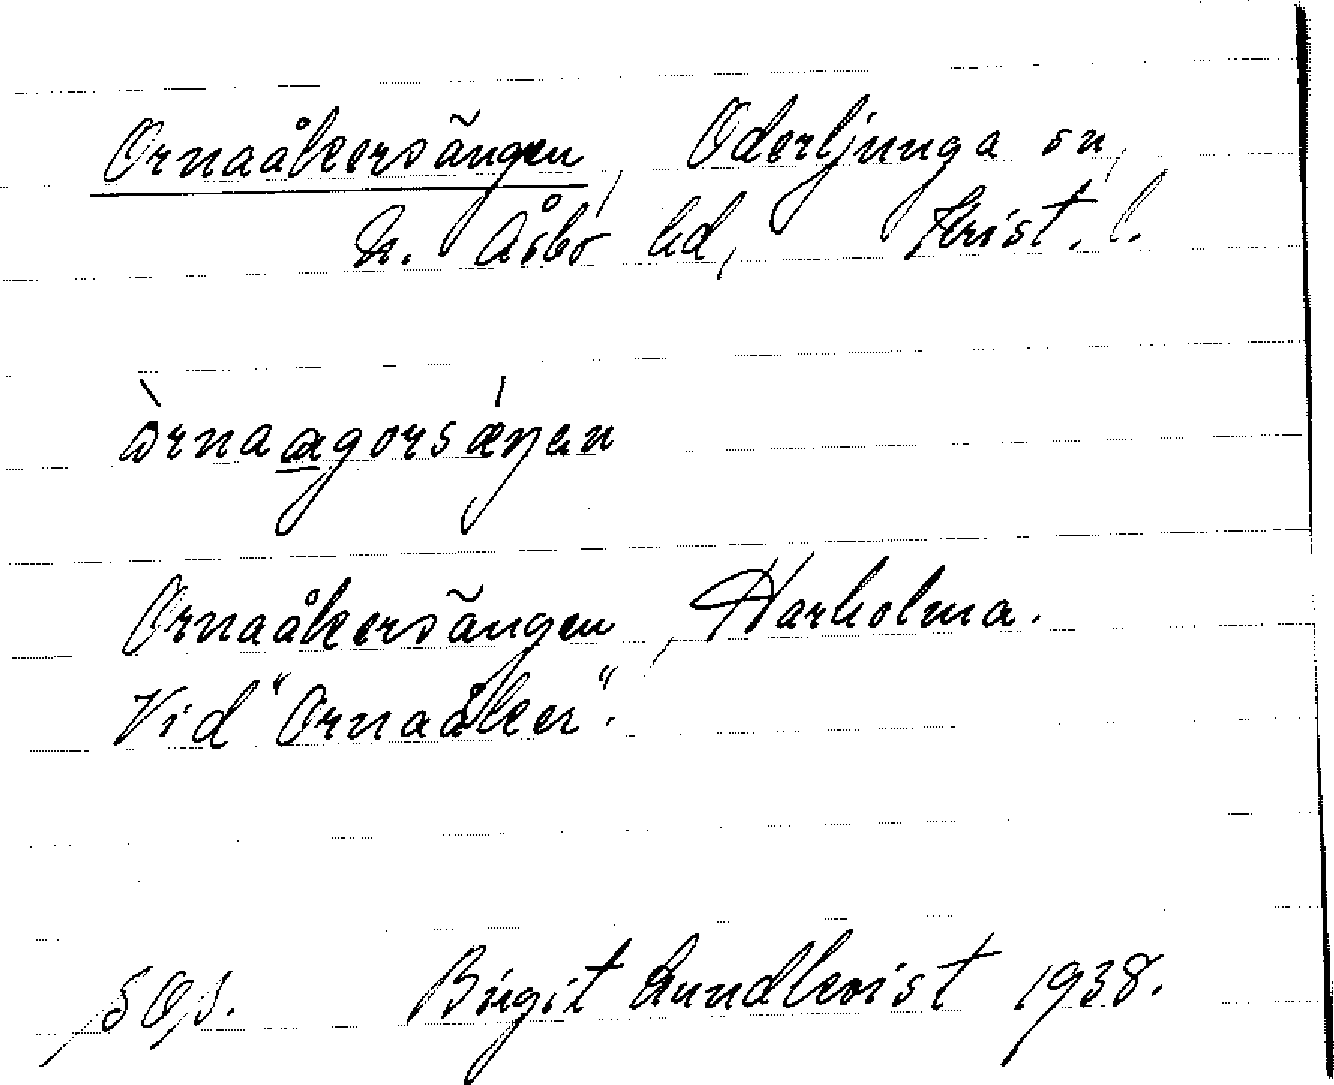 Ornaåkersängen, Oderljunga sn,
N. Åsbo hd, Krist. l.
òrnaagorsæŋen
Ornaåkersängen, Harholma.
Vid "Ornaåker".
Birgit Lundkvist 1938.